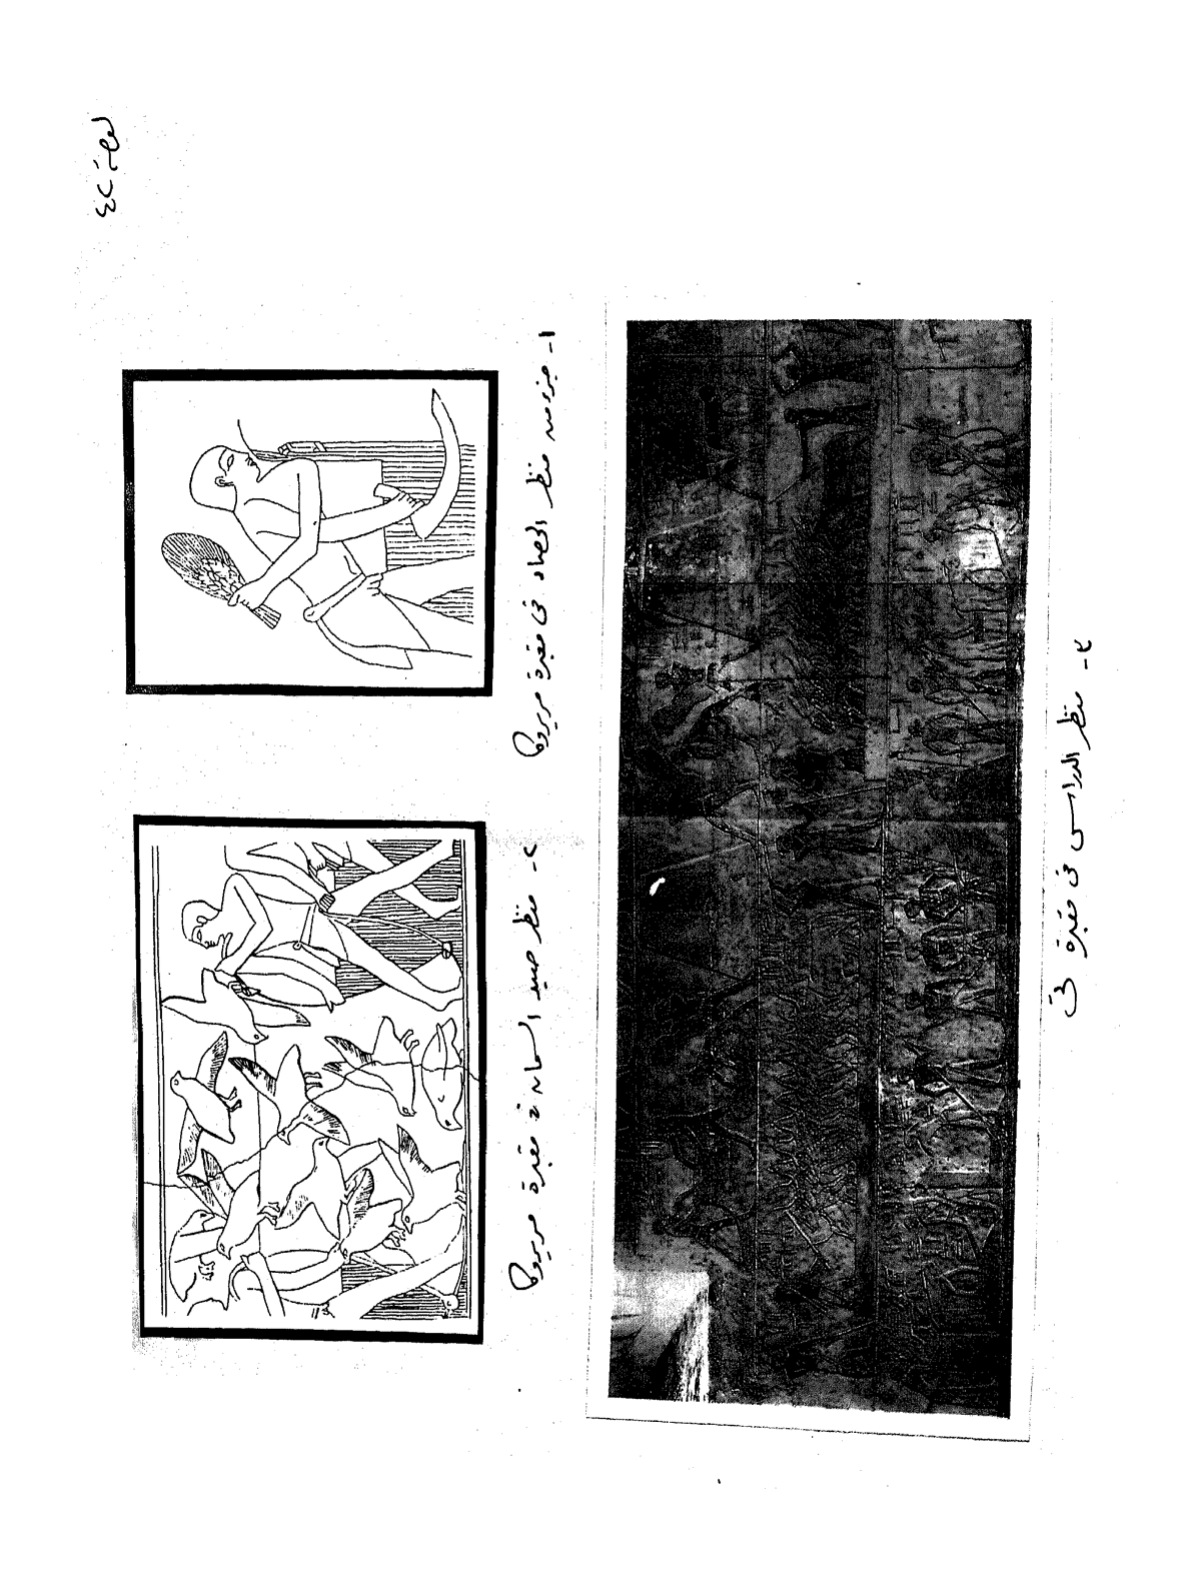 لوحة
١- جزء من منظر الحصاد فى مقبرة مريروكا
٢- منظر صيد السمان مقبرة مريروكا
٣- منظر الدراس فى مقبرة تى